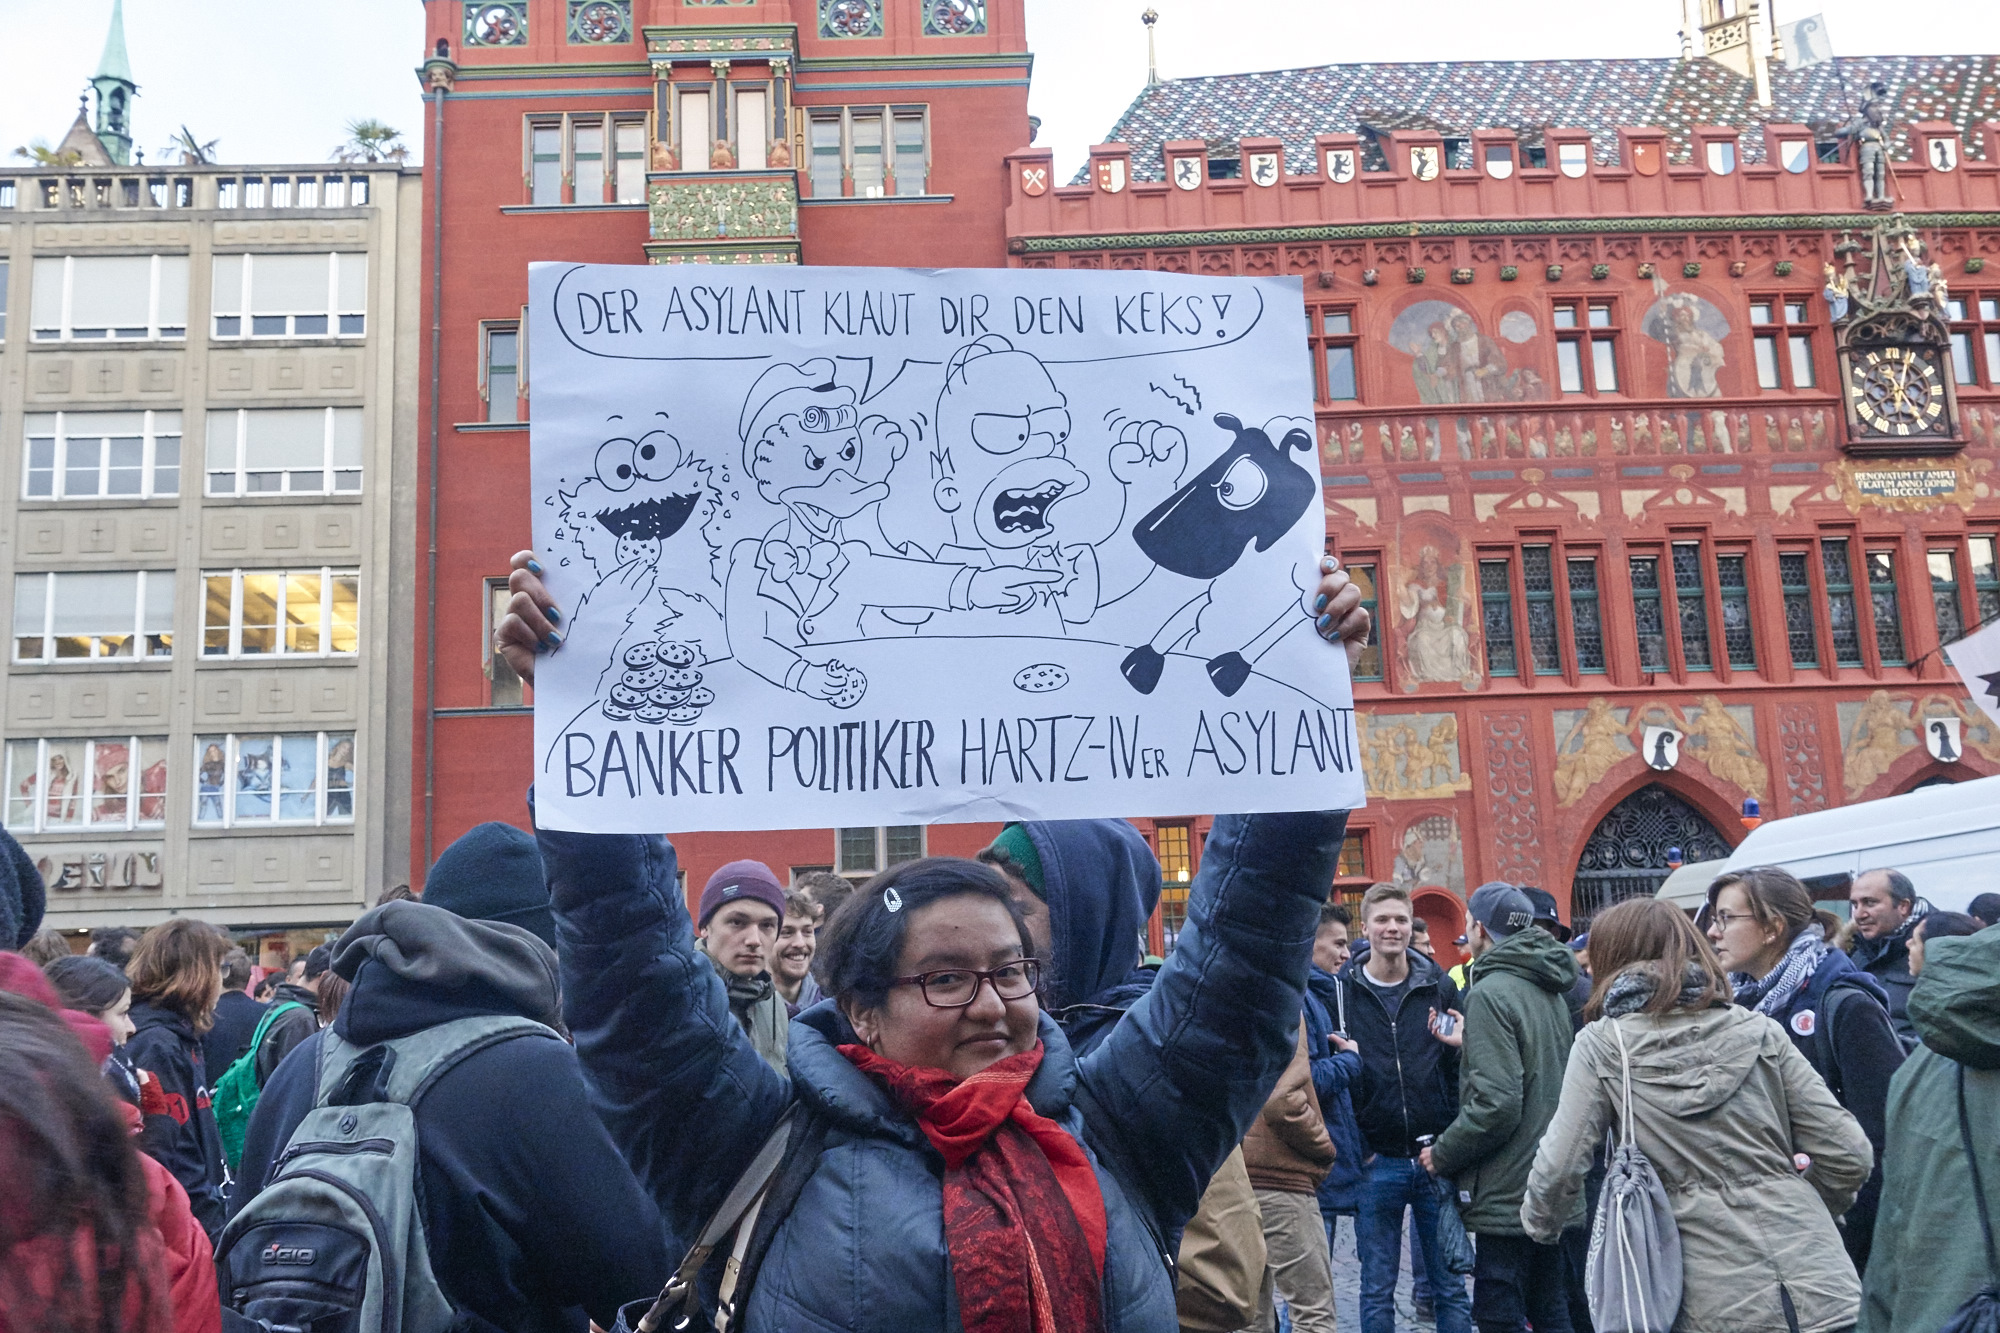 DER ASYLANT KLAUT DIR DEN KEKS!
BANKER POLITIKER HARTZ-IVER ASYLANT
RENOVATUM ET AMPLI
FICATUM ANNO DOMINI
MDCCCCI
OGIO